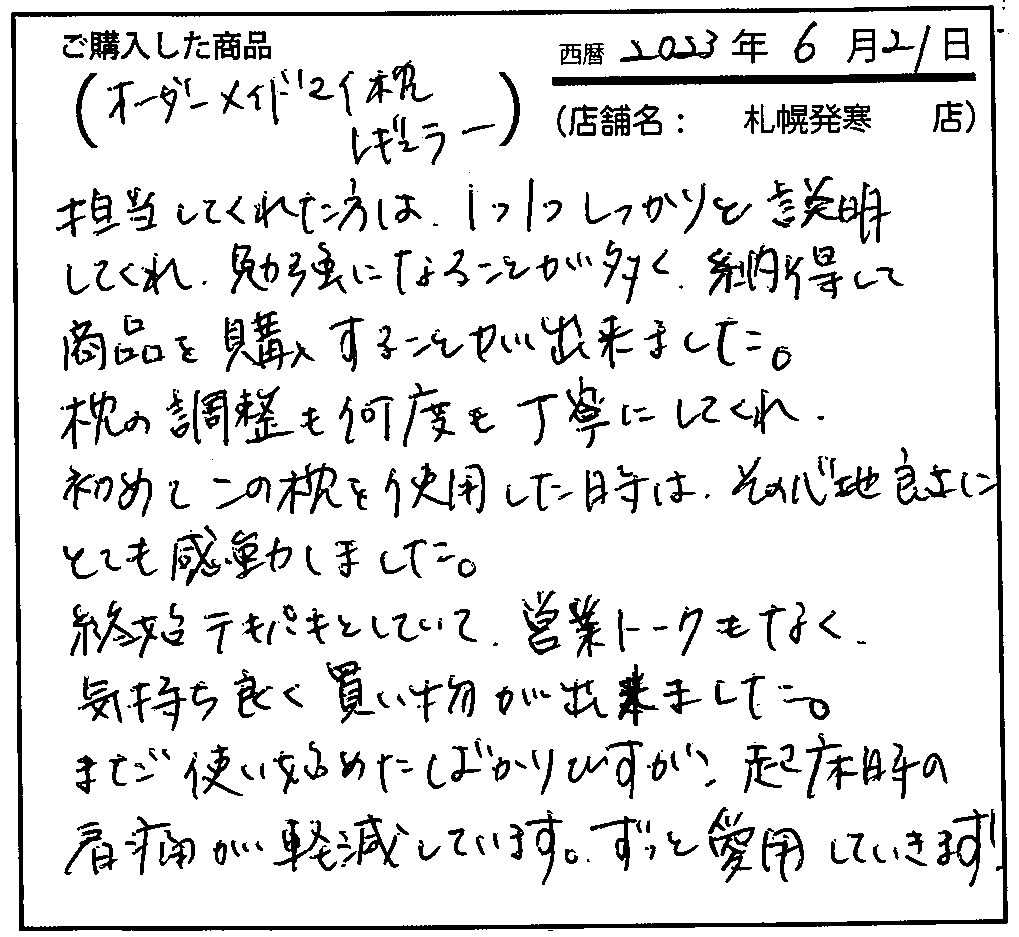 ご購入した商品
西暦 2023年 6月21日
(オーダーメイドマイ枕
レギュラー)
(店舗名： 札幌発寒 店)
担当してくれた方は、1つ1つしっかりと説明
してくれ、勉強になることが多く、納得して
商品を購入することが出来ました。
枕の調整も何度も丁寧にしてくれ、
初めてこの枕を使用した時は、その心地良さに
とても感動しました。
終始テキパキとしていて、営業トークもなく、
気持ち良く買い物が出来ました。
まだ使い始めたばかりですが、起床時の
肩痛が軽減しています。ずっと愛用していきます!